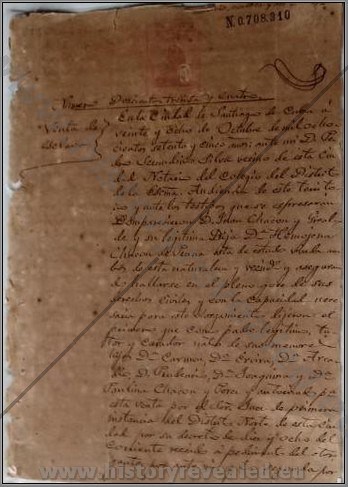 N.0.708.310
Numero Doscientos treinta y cuatro
Venta de
esclavo
En la Ciudad de Santiago de Cuba á
veinte y ocho de Octubre de mil ocho
cientos setenta y cinco: ante mi D. Pe
dro Secundino Silva vecino de esta Ciu
dad Notario del Colegio del Distrito
de la Exma. Audiencia de este territo
rio y ante los testigos que se expresaran
Comparecieron D. Juan Chacon y
y su legítima hija Dª
Chacon de estado viuda am
bos de esta naturaleza y vecindad y aseguran
do hallarse en el pleno goce de sus
derechos civiles y con la capacidad nece
saria para este otorgamiento dijeron el
primero que como padre legítimo, tu
tor y curador nato de sus menores
hijos Dª Carmen, Dª Dª
Dª Joaquina y Dª
Paulina Chacon y autorizado pª
esta venta por el Señor Juez de primera
instancia del Distrito Norte de esta ciu
dad por su decreto de diez y ocho del
corriente á pedimento del otor
gante
por
www.historyrevealed.eu